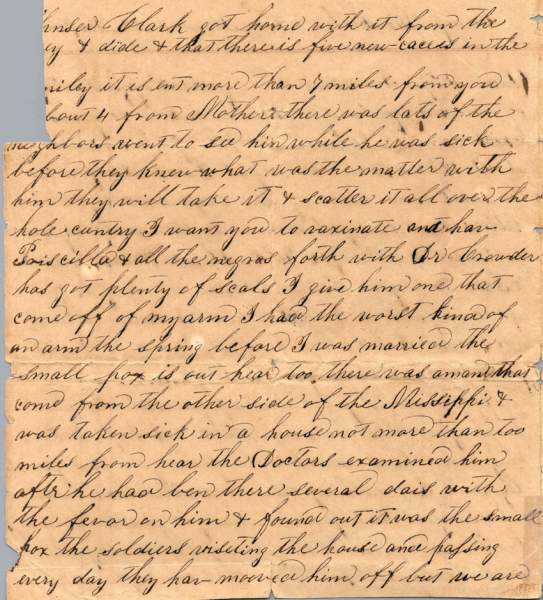 Clark got home with it from the
& dide & that there is five new caces in the
it is ent more than 7 miles from you
bout 4 from Mothers there was lats of the
neighbors went to see him while he was sick
before they knew what was the matter with
him they will take it & scatter it all over the
hole cuntry I want you to vaxinate and hav
Priscilla & all the negros forth with Dr Crowder
has got plenty of scals I give him one that
come off of my arm I had the worst kind of
an arm the spring before I was married the
small pox is out hear too there was a man that
come from the other side of the Missippi &
was taken sick in a house not more than too
miles from hear the Doctors examined him
after he had ben there several dais with
the fevar on him & found out it was the small
pox the soldiers viseting the house and passing
every day they hav mooved him off but we are